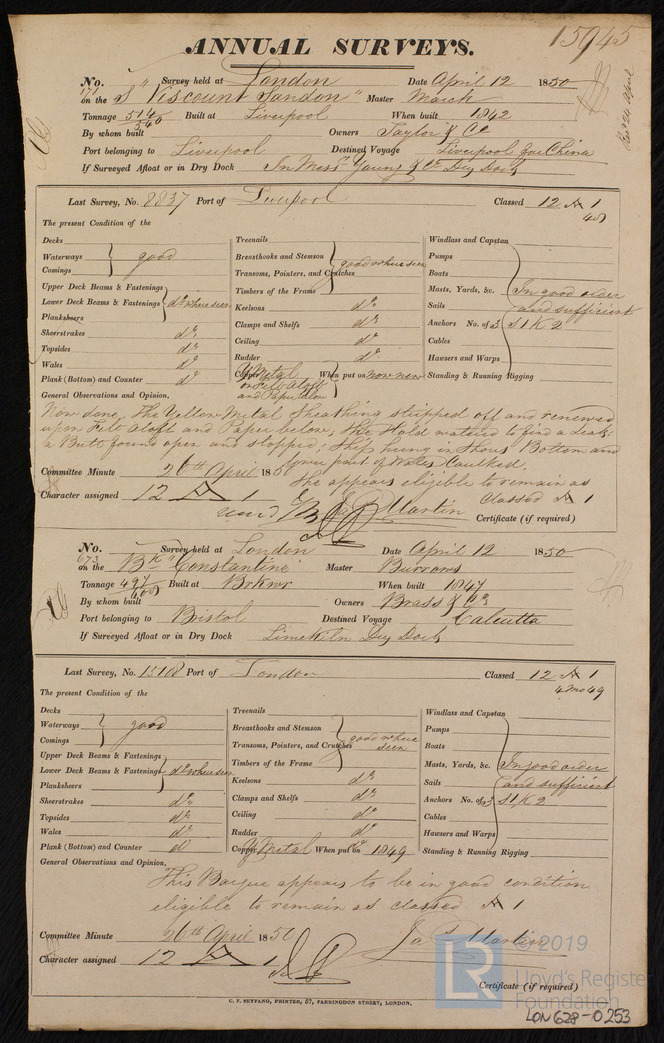 15945
ANNUAL SURVEYS.
No. 171 Survey held at London Date April 12 1850
on the S "Viscount Sandon" Master Marsh
Tonnage 514/540 Built at Liverpool When built 1842
By whom built Owners Taylor & Co
Port belonging to Liverpool Destined Voyage Liverpool for China
If Surveyed Afloat or in Dry Dock In Messrs Young & Co Dry Dock
Last Survey, No. 8837 Port of Liverpool Classed 12 A 1
The present Condition of the
Decks
Waterways good
Comings
Upper Deck Beams & Fastenings
Lower Deck Beams & Fastenings do where seen
Planksheers
Sheerstrakes do
Topsides do
Wales do
Plank (Bottom) and Counter do
Treenails
Breasthooks and Stemson good where seen
Transoms, Pointers, and Crutches
Timbers of the Frame
Keelsons do
Clamps and Shelfs do
Ceiling do
Rudder do
Copper Y Metal When put on now new
on Felt aloft
and Paper below
Windlass and Capstan
Pumps
Boats
Masts, Yards, &c. In good order
Sails and sufficient
Anchors No. of 3 St K 2
Cables
Hawsers and Warps
Standing & Running Rigging
General Observations and Opinion,
Now done, The Yellow Metal sheathing stripped off and renewed
upon Felt aloft and Paper below, the Hold watered to find a Leak;
a Butt found open and stopped; Ship hung in Shores Bottom and
lower part of Wales Caulked.
She appears eligible to remain as
Classed A 1
Committee Minute 26th April 1850
Character assigned 12 A 1
Jas Martin
Certificate (if required)
No. 673 Survey held at London Date April 12 1850
on the Bk "Constantine" Master Burrows
Tonnage 497/600 Built at When built 1847
By whom built Owners Brass & Co
Port belonging to Bristol Destined Voyage Calcutta
If Surveyed Afloat or in Dry Dock Limekiln Dry Dock
Last Survey, No. 13108 Port of London Classed 12 A 1
4 Mo 49
The present Condition of the
Decks
Waterways good
Comings
Upper Deck Beams & Fastenings
Lower Deck Beams & Fastenings do where seen
Planksheers
Sheerstrakes do
Topsides do
Wales do
Plank (Bottom) and Counter do
Treenails
Breasthooks and Stemson good where seen
Transoms, Pointers, and Crutches
Timbers of the Frame
Keelsons do
Clamps and Shelfs do
Ceiling do
Rudder do
Copper Y Metal When put on 1849
Windlass and Capstan
Pumps
Boats
Masts, Yards, &c. In good order
Sails and sufficient
Anchors No. of 3 St K 2
Cables
Hawsers and Warps
Standing & Running Rigging
General Observations and Opinion,
This Barque appears to be in good condition
eligible to remain as classed A 1
Committee Minute 26th April 1850
Character assigned 12 A 1
Jas Martin
Certificate (if required)
C. F. SEYFANG, PRINTER, 57, FARRINGDON STREET, LONDON.
© 2019
LR Lloyd's Register
Foundation
LON 628-0253